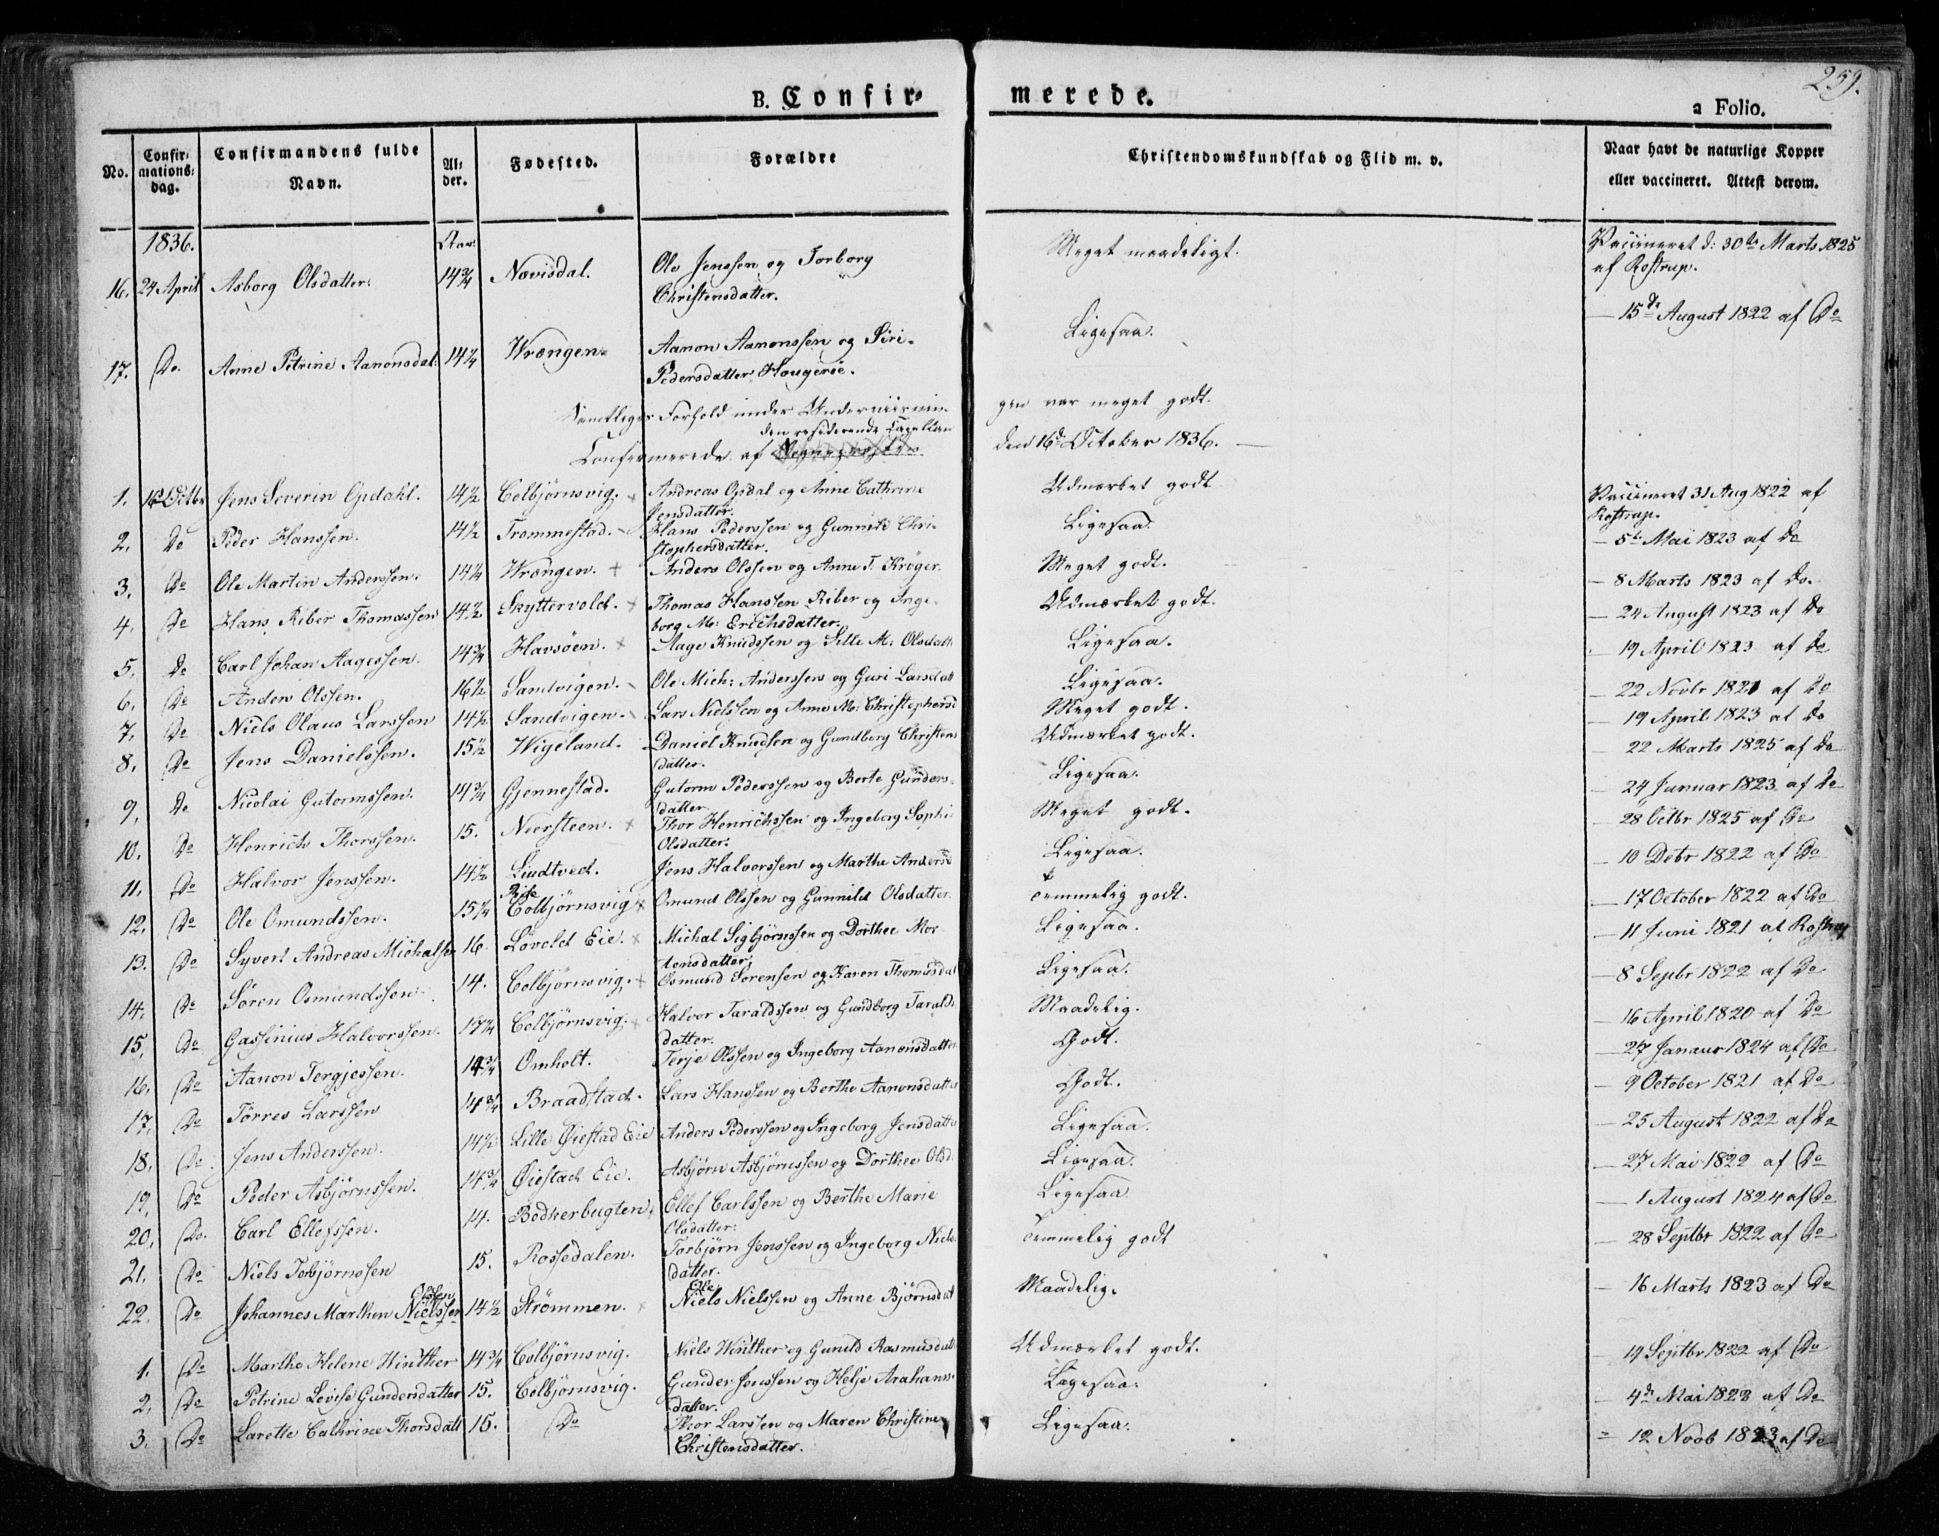 259.
B. Confirmerede. a Folio.
No. Confirmations-dag. Confirmandens fulde Navn. Alder. Fødested. Forældre Christendomskundskab og Flid m. v. Naar havt de naturlige Kopper eller vaccineret. Attest derom.
1836. Aar:
16. 24 April Asborg Olsdatter. 14¾ Nævisdal. Ole Jenssen og Torborg Christensdatter. Meget maadeligt. Vaccineret d: 30te Marts 1825 af Rostrup.
17. Do. Anne Petrine Aanonsdat: 14¼ Wrængen. Aanon Aanonssen og Siri Pedersdatter Hougerøe. Ligesaa. — 15de August 1822 af Do
Samtliges Forhold under Underviisningen var meget godt.
Confirmerede af den residerende Capellan den 16d October 1836.
1. 16 Octbr Jens Severin Opdahl. 14½ Colbjørnsvig. Andreas Opdal og Anne Cathrine Jensdatter. Udmærket godt Vaccineret 31 Aug 1822 af Rostrup.
2. Do Peder Hanssen. 14½ Trommestad. Hans Pederssen og Gunnild Christophersdatter. Ligesaa. — 5t Mai 1823 af Do
3. Do Ole Martin Anderssen. 14¼ Wrængen. + Anders Olssen og Anne T. Krøger. Meget godt. — 8 Marts 1823 af Do.
4. Do Hans Riber Thomassen 14½ Skyttervold. + Thomas Hanssen Riber og Ingeborg M: Erichsdatter. Udmærket godt. — 24 August 1823 af Do
5. Do Carl Johan Aagessen. 14¾ Havsøen. + Aage Knudssen og Sille M. Olsdatt: Ligesaa. 19 April 1823 af Do
6. Do Anders Olssen. 16½ Sandvigen. Ole Mich: Anderssen og Guri Larsdatt Ligesaa. — 22 Novbr 1821 af Do
7. Do Niels Olaus Larssen 14½ Sandvigen. Lars Nielssen og Anne M: Christophersd Meget godt. — 19 April 1823 af Do
8. Do Jens Danielssen. 15½ Wigeland. Daniel Knudsen og Gundborg Christensdatter. Udmærket godt. — 22 Marts 1825 af Do
9. Do Nicolai Gutormssen. 14¾ Gjennestad. Gutorm Pederssen og Berte Gundersdatter Ligesaa. — 24 Januar 1823 af Do
10. Do Henrich Thorssen. 15. Neersteen. + Thor Henrichssen og Ingeborg Sophi Olsdatter. Meget godt. — 28 Octbr 1825 af Do
11. Do Halvor Jenssen. 14½ Lindtved. Jens Halvorssen og Marthe Andersd Ligesaa. — 10 Debr 1822 af Do
12. Do Ole Omundssen. 15¼ Colbjørnsvig + Omund Olssen og Gunnild Olsdatter. Temmelig godt. — 17 October 1822 af Do
13. Do Syvert Andreas Michalsen 16. Løvold Eie. + Michal Sigbjørnssen og Dorthee Mortensdatter. Ligesaa. — 11 Juni 1821 af Rostrup
14. Do Søren Osmundssen. 14. Colbjørnsvig. + Osmund Sørensen og Karen Thomasdat Ligesaa. — 8 Septbr 1822 af Do
15. Do Gassinius Halvorssen. 17¼ Colbjørnsvig. + Halvor Taraldssen og Gundborg Taraldsdatter. Maadelig. — 16 April 1820 af Do
16. Do Aanon Tergjessen. 14¾ Omholt. Terje Olssen og Ingeborg Aanonsdatter Godt. — 27 Janaur 1824 af Do
17. Do Torres Larssen 14¾ Braadstad. Lars Hanssen og Berthe Aanonsdatter Godt. — 9 October 1821 af Do
18. Do Jens Anderssen. 14½ Lille Øiestad Eie Anders Pederssen og Ingeborg Jensdatter Ligesaa. — 25 August 1822 af Do
19. Do Peder Asbjørnssen. 14¾ Øiestad Eie. Asbjørn Asbjørnssen og Dorthee Olsd. Ligesaa. — 27 Mai 1822 af Do
20. Do. Carl Ellefssen. 14. Bødkerbugten. Ellef Carlssen og Berthe Marie Olsdatter: Ligesaa — 1 August 1824 af Do
21. Do Niels Torbjørnssen 15. Rossedalen. Torbjørn Jenssen og Ingeborg Nielsdatter. Temmelig godt — 28 Septbr 1822 af Do
22. Do Johannes Marthin Nielssen Olsen 14½ Strømmen. Niels Nielssen Ole og Anne Bjørnsdat Maadelig. — 16 Marts 1823 af Do
1. Do Marthe Helene Winther 14¾ Colbjørnsvig. Niels Winther og Gunild Rasmusdatt Udmærket godt. — 19 Septbr 1822 af Do
2. Do Petrine Levise Gundersdatter 15. Colbjørnsvig. Gunder Jenssen og Helje Arahamsdatter. Ligesaa. — 4de Mai 1823 af Do
3. Do Larette Cathrine Thorsdatt 15. Do Thor Larssen og Maren Christine Christensdatter. Ligesaa. = 12 Novb 1823 af Do